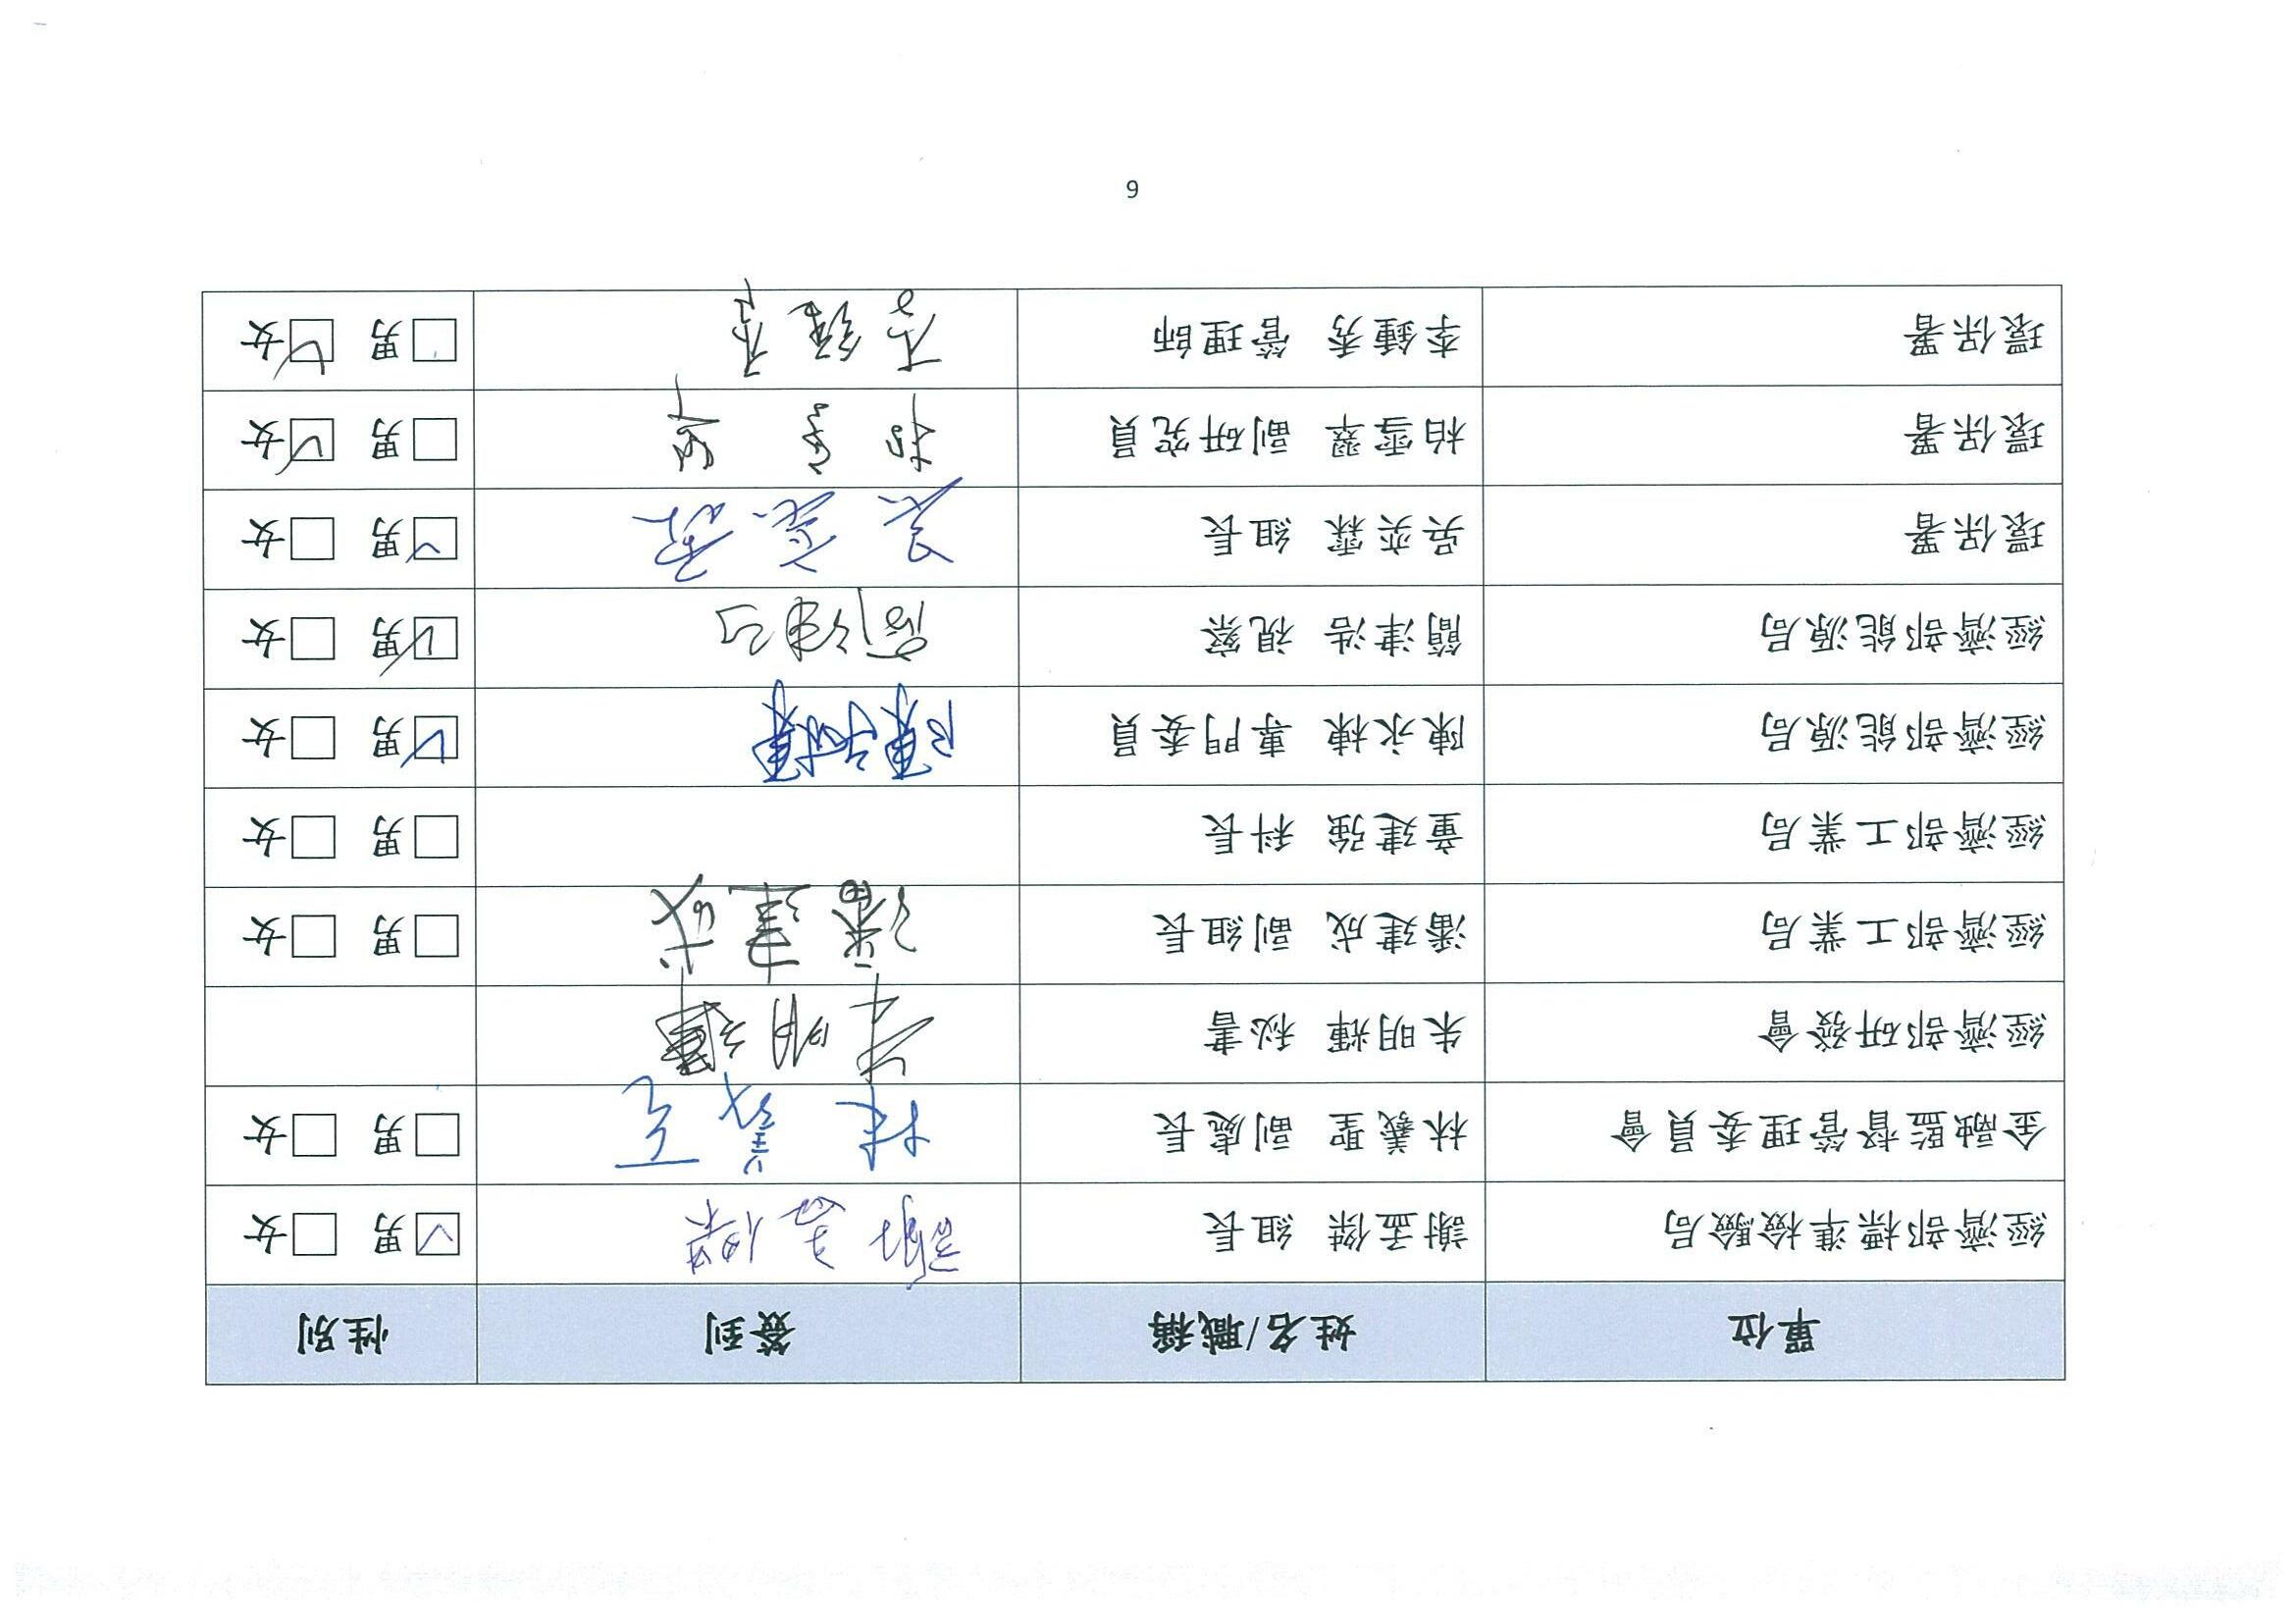 單位 姓名/職稱 簽到 性別
經濟部標準檢驗局 謝孟傑 組長 謝孟傑 ☑男 □女
金融監督管理委員會 林義聖 副處長 林義聖 □男 □女
經濟部研發會 朱明輝 秘書 朱明輝
經濟部工業局 潘建成 副組長 潘建成 □男 □女
經濟部工業局 童建強 科長 □男 □女
經濟部能源局 陳永棟 專門委員 ☑男 □女
經濟部能源局 簡津浩 視察 簡津浩 ☑男 □女
環保署 吳奕霖 組長 吳奕霖 ☑男 □女
環保署 柏雪翠 副研究員 柏雪翠 □男 ☑女
環保署 李鍾秀 管理師 李鍾秀 □男 ☑女
6